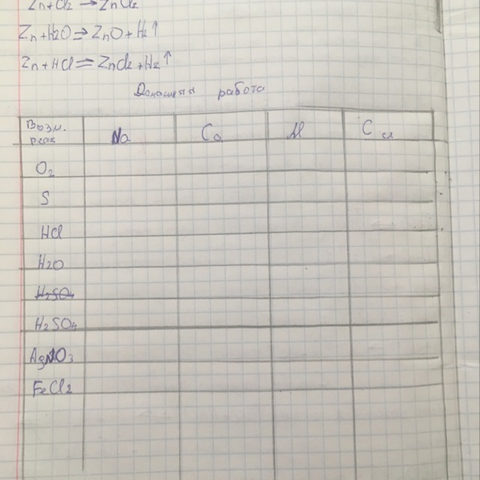 Zn+Cl2 → ZnCl2
Zn+H2O ⇒ ZnO+H2↑
Zn+HCl = ZnCl2+H2↑
Домашняя работа
Возм. Na Ca Al Cu
реак
O2
S
HCl
H2O
H2SO4
H2SO4
AgNO3
FeCl2